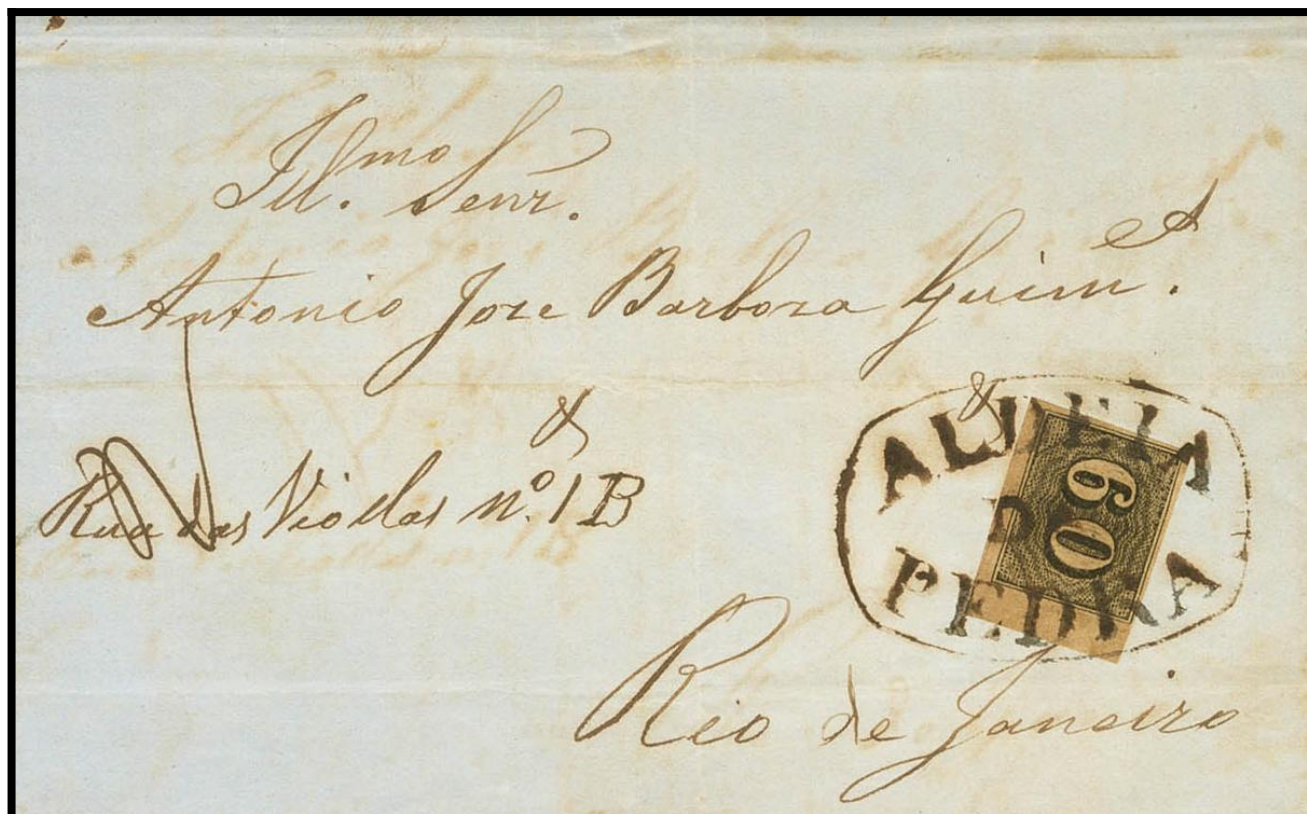 Ill.mo Senr.
Antonio Joze Barboza Guim.es
&
Rua das Viollas nº. 1 B
ALDEIA
DA
PEDRA
60
Rio de Janeiro